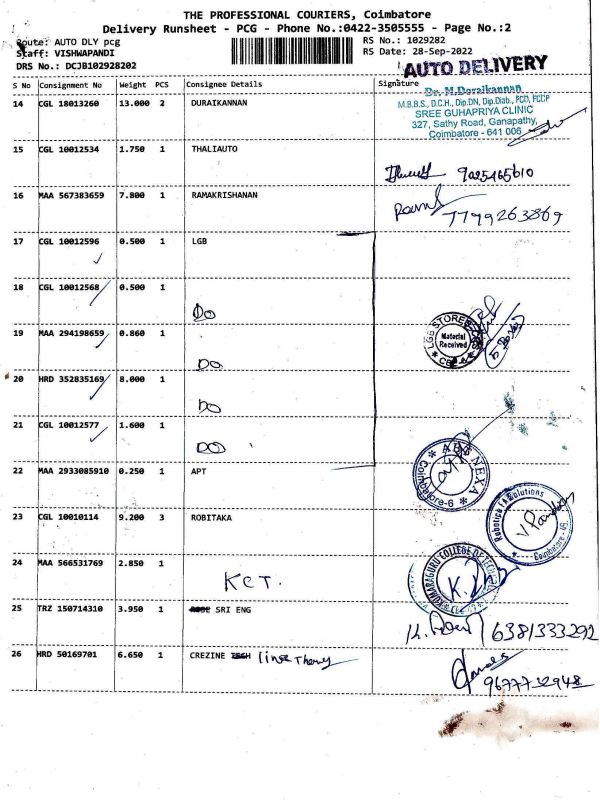 THE PROFESSIONAL COURIERS, Coimbatore
Delivery Runsheet - PCG - Phone No.:0422-3505555 - Page No.:2
Route: AUTO DLY pcg
Staff: VISHWAPANDI
DRS No.: DCJB102928202
RS No.: 1029282
RS Date: 28-Sep-2022
AUTO DELIVERY
S No Consignment No Weight PCS Consignee Details Signature
14 CGL 18013260 13.000 2 DURAIKANNAN
Dr. M.Doraikannan
M.B.B.S., D.C.H., Dip.DN, Dip.Diab., PCD, FCCP
SREE GUHAPRIYA CLINIC
327, Sathy Road, Ganapathy,
Coimbatore - 641 006
15 CGL 10012534 1.750 1 THALIAUTO
9025465610
16 MAA 567383659 7.800 1 RAMAKRISHANAN
7799263869
17 CGL 10012596 0.500 1 LGB
18 CGL 10012568 0.500 1 DO
LGB STORES
Material
Received
19 MAA 294198659 0.860 1 DO
20 HRD 352835169 8.000 1 DO
21 CGL 10012577 1.600 1 DO
22 MAA 2933085910 0.250 1 APT
NEXA
Coimbatore-6
23 CGL 10010114 9.200 3 ROBITAKA
Solutions
V Pandian
24 MAA 566531769 2.850 1 KCT.
KUMARAGURU COLLEGE OF TECH
25 TRZ 150714310 3.950 1 SRI ENG
6381333292
26 HRD 50169701 6.650 1 CREZINE
9677732948